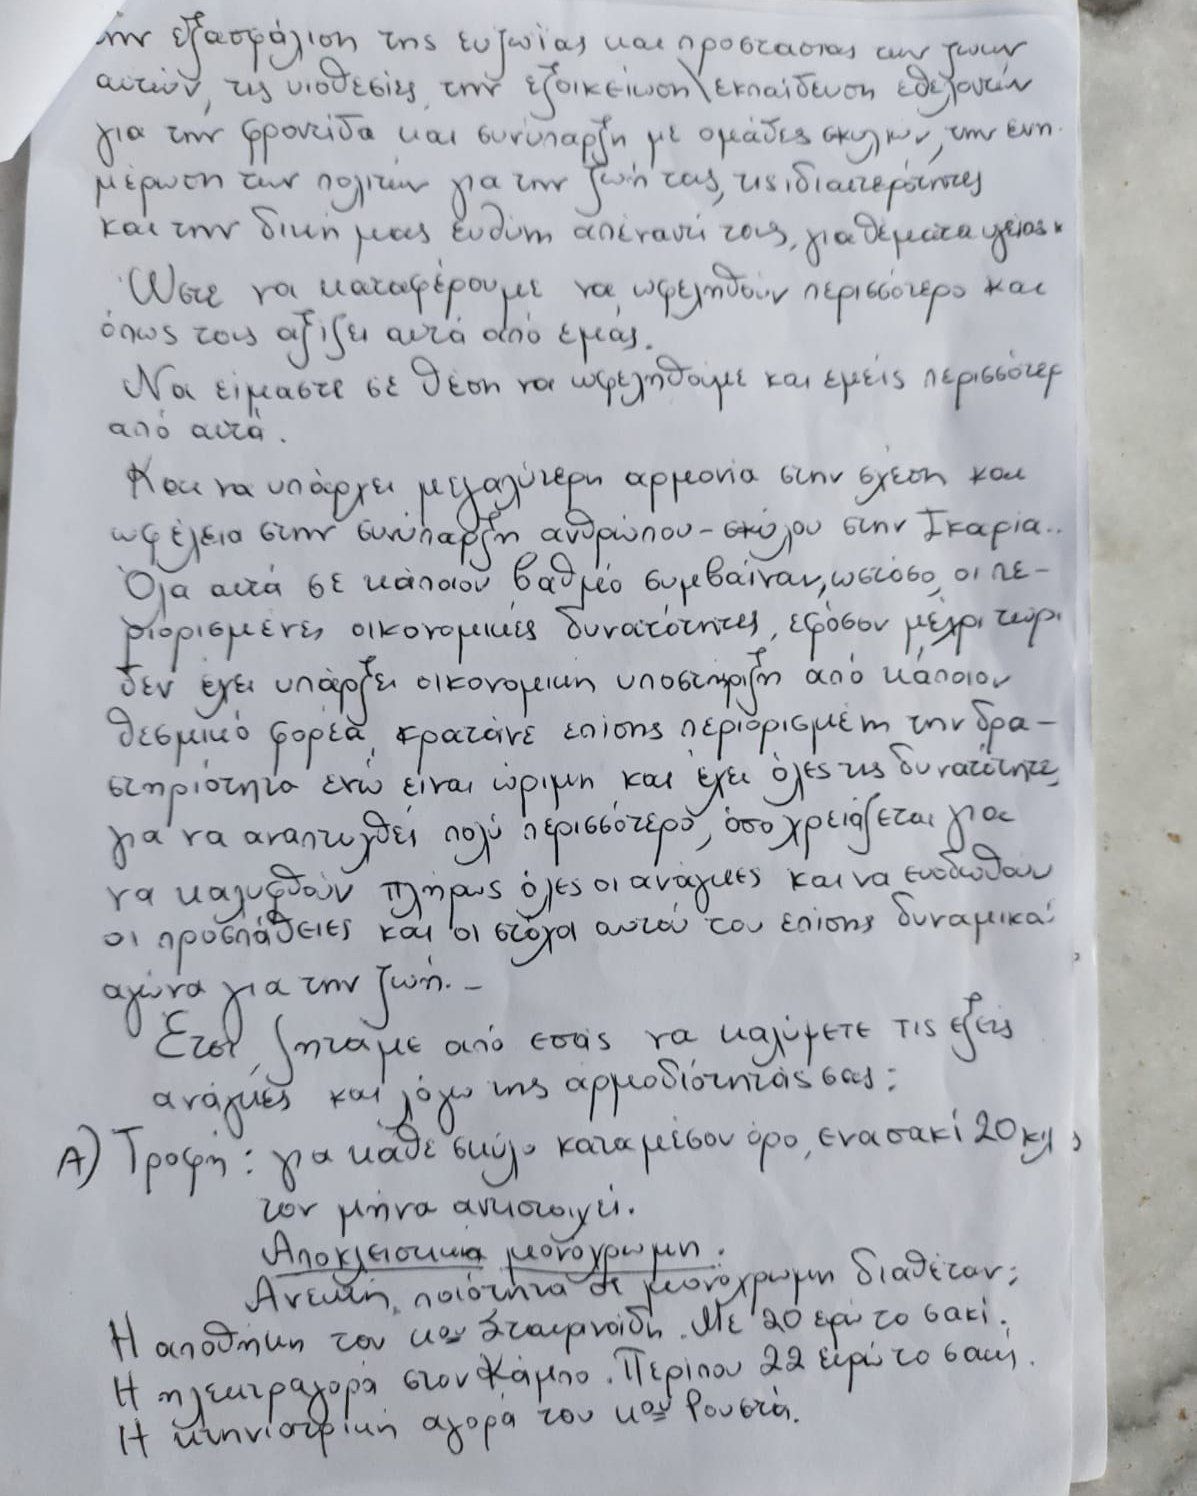 την εξασφάλιση της ευζωίας και προστασίας των ζωών
αυτών, τις υιοθεσίες, την εξοικείωση\εκπαίδευση εθελοντών
για την φροντίδα και συνύπαρξη με ομάδες σκύλων, την ενη-
μέρωση των πολιτών για την ζωή τους, τις ιδιαιτερότητες
και την δική μας ευθύνη απέναντί τους, για θέματα υγείας κ
Ώστε να καταφέρουμε να ωφεληθούν περισσότερο και
όπως τους αξίζει αυτά από εμάς.
Να είμαστε σε θέση να ωφεληθούμε και εμείς περισσότερ
από αυτά.
Και να υπάρχει μεγαλύτερη αρμονία στην σχέση και
ωφέλεια στην συνύπαρξη ανθρώπου-σκύλου στην Ικαρία..
Όλα αυτά σε κάποιον βαθμό συμβαίναν, ωστόσο, οι πε-
ριορισμένες οικονομικές δυνατότητες, εφόσον μέχρι τώρ
δεν έχει υπάρξει οικονομική υποστήριξη από κάποιον
θεσμικό φορέα, κρατάνε επίσης περιορισμένη την δρα-
στηριότητα ενώ είναι ώριμη και έχει όλες τις δυνατότητες
για να αναπτυχθεί πολύ περισσότερο, όσο χρειάζεται για
να καλυφθούν πλήρως όλες οι ανάγκες και να ευοδωθούν
οι προσπάθειες και οι στόχοι αυτού του επίσης δυναμικά
αγώνα για την ζωή.-
Έτσι, ζητάμε από εσάς να καλύψετε τις εξείς
ανάγκες και λόγω της αρμοδιότητάς σας:
Α) Τροφή: για κάθε σκύλο κατά μέσον όρο, ενα σακί 20 κιλ
τον μήνα αντιστοιχεί.
Αποκλειστικά μονόχρωμη.
Ανεκτή ποιότητα σε μονόχρωμη διαθέταν:
Η αποθήκη του κου Σταμηνοΐδη. Με 20 ευρώ το σακί.
Η ηλεκτραγορά στον Κάμπο. Περίπου 22 ευρώ το σακί.
Η κτηνιατρική αγορά του κου Ρουστά.